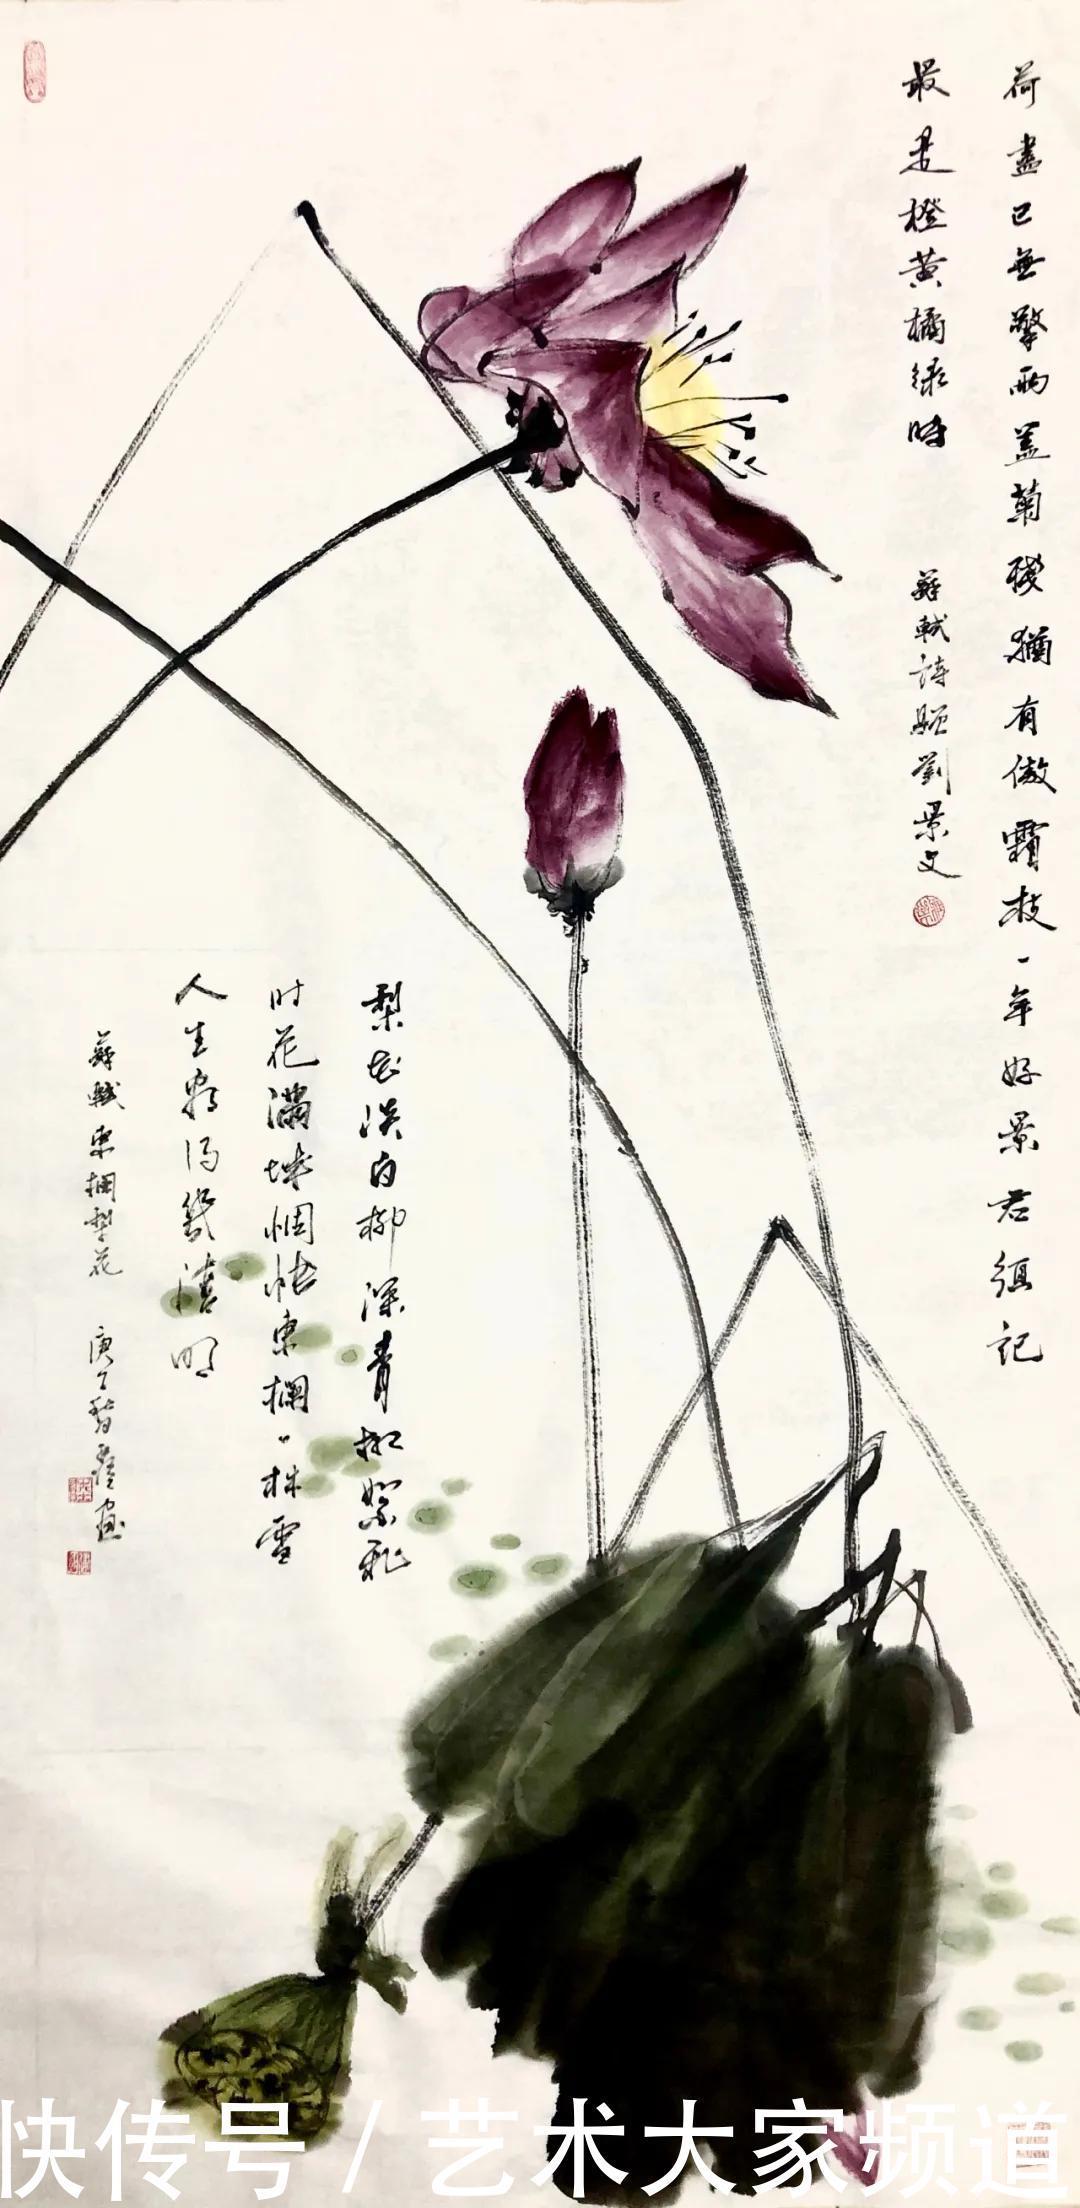 荷盡已無擎雨蓋菊殘猶有傲霜枝一年好景君須記
最是橙黄橘绿時
蘇軾詩贈劉景文
梨花淡白柳深青柳絮飛
时花滿城惆怅東欄一株雪
人生看得幾清明
蘇軾東欄梨花
庚子
画
快传号 / 艺术大家频道